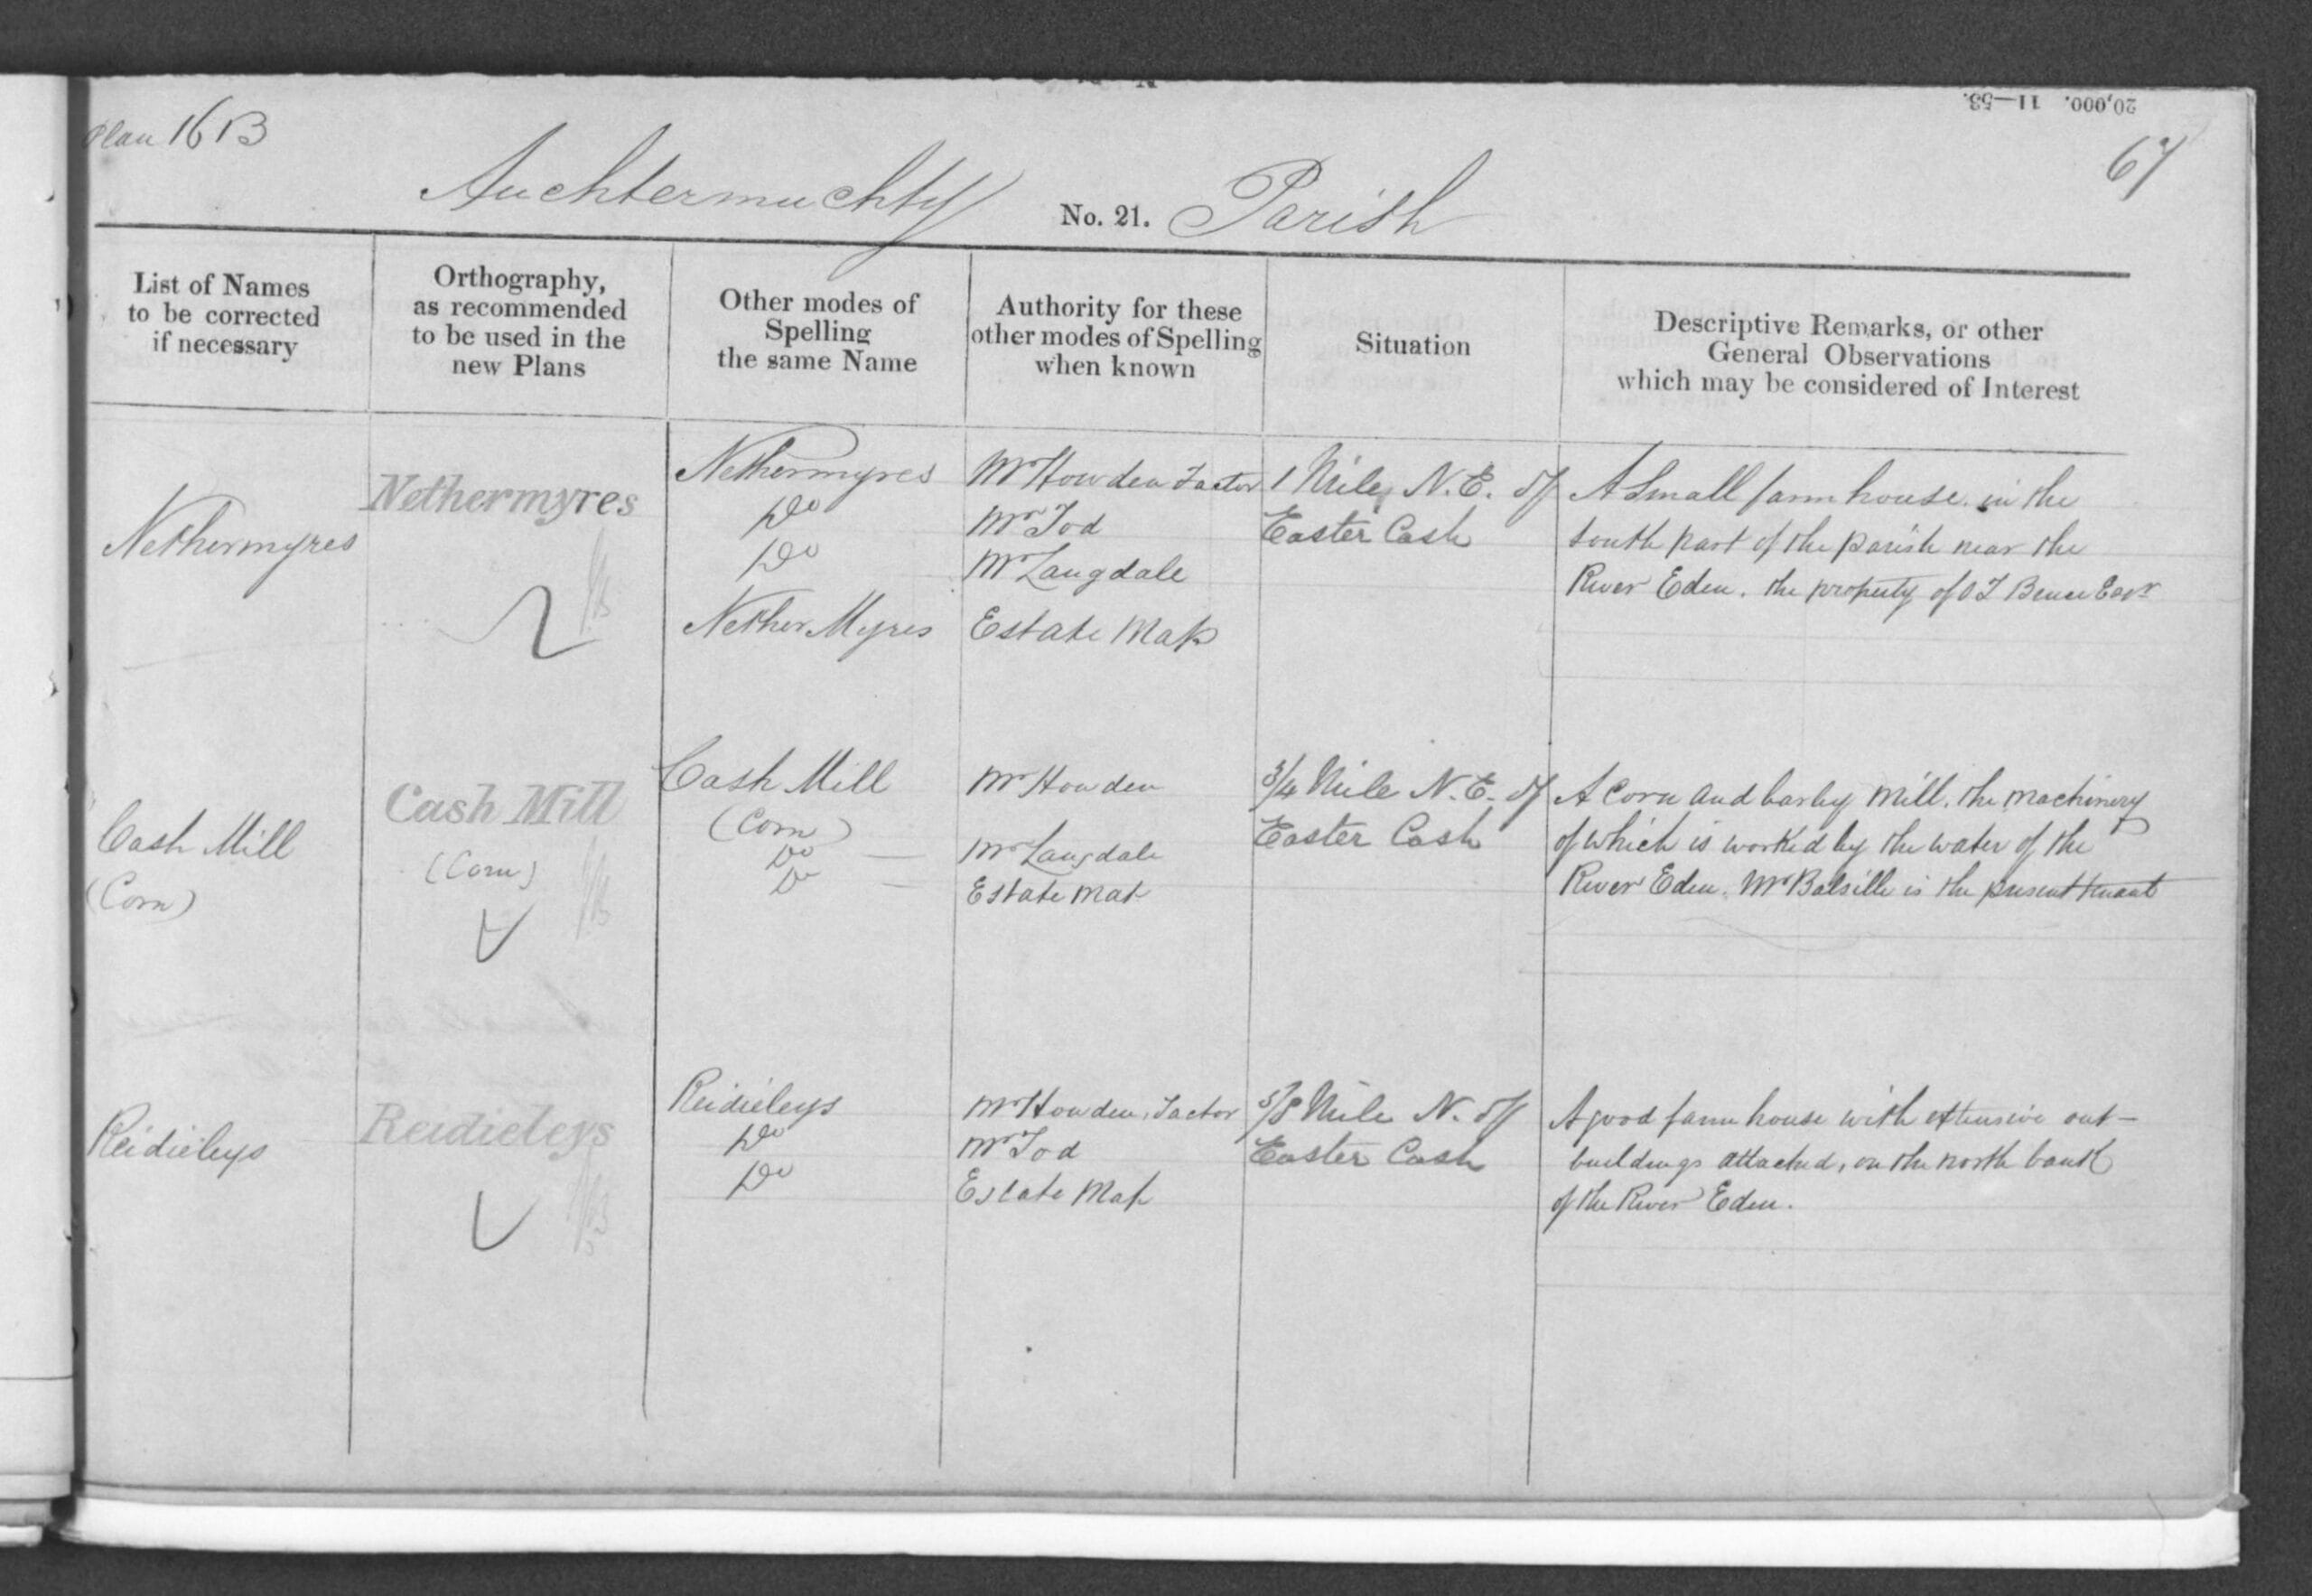 Plan 16 B
20,000. 11—53.
67
Auchtermuchty No. 21. Parish
List of Names
to be corrected
if necessary
Orthography,
as recommended
to be used in the
new Plans
Other modes of
Spelling
the same Name
Authority for these
other modes of Spelling
when known
Situation
Descriptive Remarks, or other
General Observations
which may be considered of Interest
Nethermyres
Nethermyres
Nethermyres
Do
Do
Nether Myres
Mr Howden Factor
Mr Tod
Mr Langdale
Estate Map
1 Mile N.E. of
Easter Cash
A Small farm house in the
south part of the parish near the
River Eden. the property of O T Bruce Esqr
Cash Mill
(Corn)
Cash Mill
(Corn)
Cash Mill
(Corn)
Do —
Do —
Mr Howden
Mr Langdale
Estate Map
3/4 Mile N.E. of
Easter Cash
A Corn and barley Mill, the machinery
of which is worked by the water of the
River Eden. Mr Balsille is the present tenant
Reidieleys
Reidieleys
Reidieleys
Do
Do
Mr Howden, Factor
Mr Tod
Estate Map
5/8 Mile N. of
Easter Cash
A good farm house with extensive out-
buildings attached, on the north bank
of the River Eden.